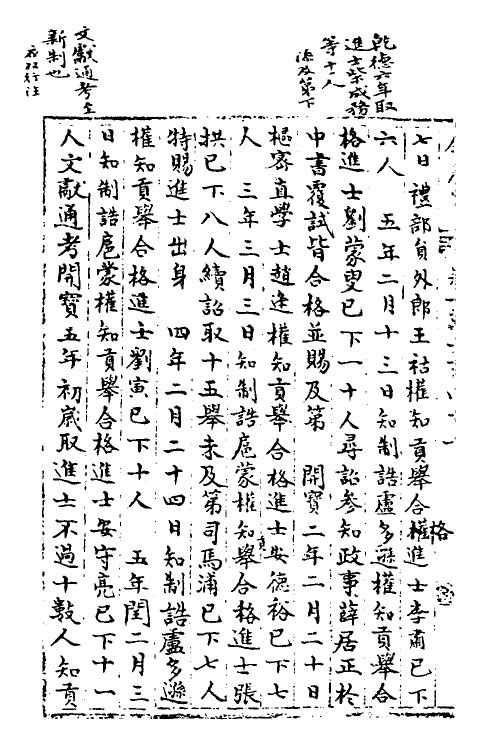 乾德六年取
進士柴成務
等十一人
添及第下
文獻通考至
新制也
應改行注
七日禮部員外郎王祜權知貢舉合權進士李肅已下
格
六人　五年二月十三日知制誥盧多遜權知貢舉合
格進士劉蒙叟已下一十人尋詔參知政事薛居正於
中書覆試皆合格並賜及第　開寶二年二月二十日
樞密直學士趙逵權知貢舉合格進士安德裕已下七
人　三年三月三日知制誥扈蒙權知舉合格進士張
貢
拱已下八人續詔取十五舉未及第司馬浦已下七人
特賜進士出身　四年二月二十四日知制誥盧多遜
權知貢舉合格進士劉寅已下十人　五年閏二月三
日知制誥扈蒙權知貢舉合格進士安守亮已下十一
人文獻通考開寶五年初歲取進士不過十數人知貢